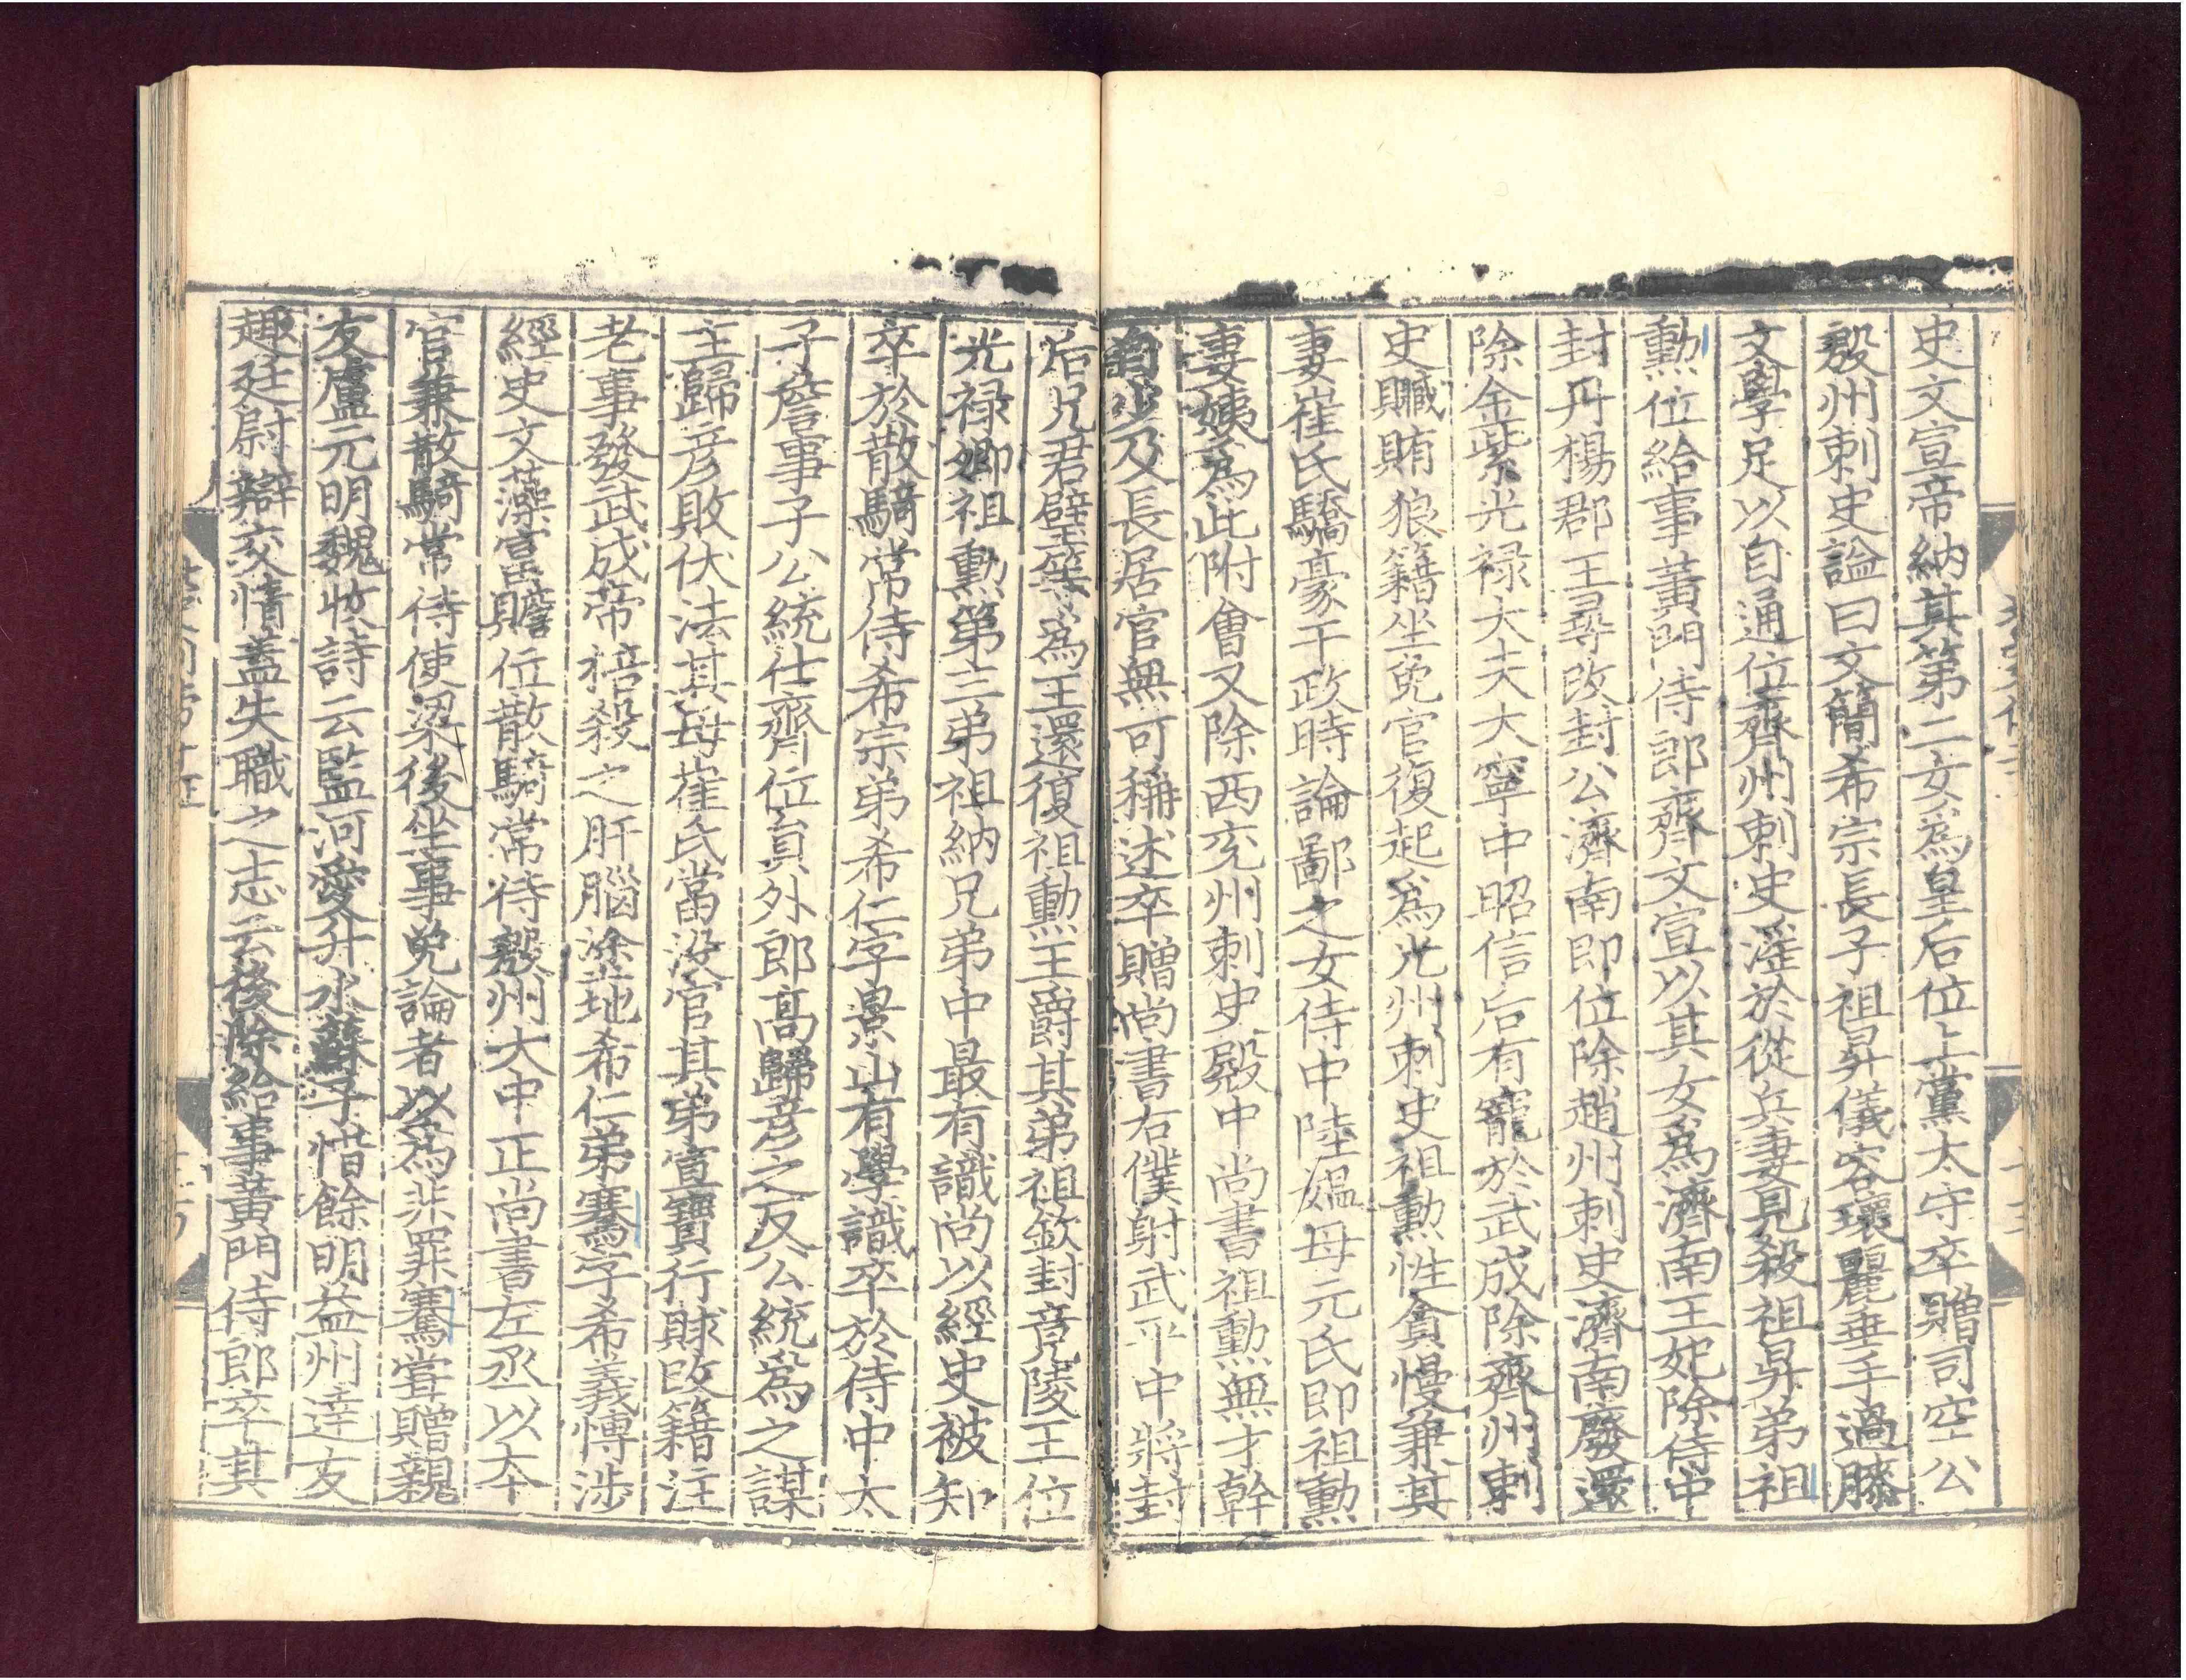 史文宣帝納其第二女為皇后位上黨太守卒贈司空公
殷州刺史謚曰文簡希宗長子祖昇儀容瓌麗垂手過膝
文學足以自通位齊州刺史淫於從兵妻見殺祖昇弟祖
勲位給事黃門侍郎齊文宣以其女為濟南王妃除侍中
封丹楊郡王尋改封公濟南即位除趙州刺史濟南廢還
除金紫光禄大夫大寧中昭信后有寵於武成除齊州刺
史贓賄狼籍坐免官復起為光州刺史祖勲性貪慢兼其
妻崔氏驕豪干政時論鄙之女侍中陸媪母元氏即祖勲
妻姨為此附會又除西兖州刺史殿中尚書祖勲無才幹
自少及長居官無可稱述卒贈尚書右僕射武平中將封
后兄君璧等為王還復祖勲王爵其弟祖欽封竟陵王位
光禄卿祖勲第三弟祖納兄弟中最有識尚以經史被知
卒於散騎常侍希宗弟希仁字景山有學識卒於侍中太
子詹事子公統仕齊位員外郎高歸彦之反公統為之謀
主歸彦敗伏法其母崔氏當没官其弟宣寶行賕改籍注
老事發武成帝棓殺之肝腦塗地希仁弟騫字希義愽涉
經史文藻富贍位散騎常侍殷州大中正尚書左丞以本
官兼散騎常侍使梁後坐事免論者以為非罪騫甞贈親
友盧元明魏收詩云監河愛升水蘇子惜餘明益州達友
趣廷尉辯交情蓋失職之志云後除給事黃門侍郎卒其